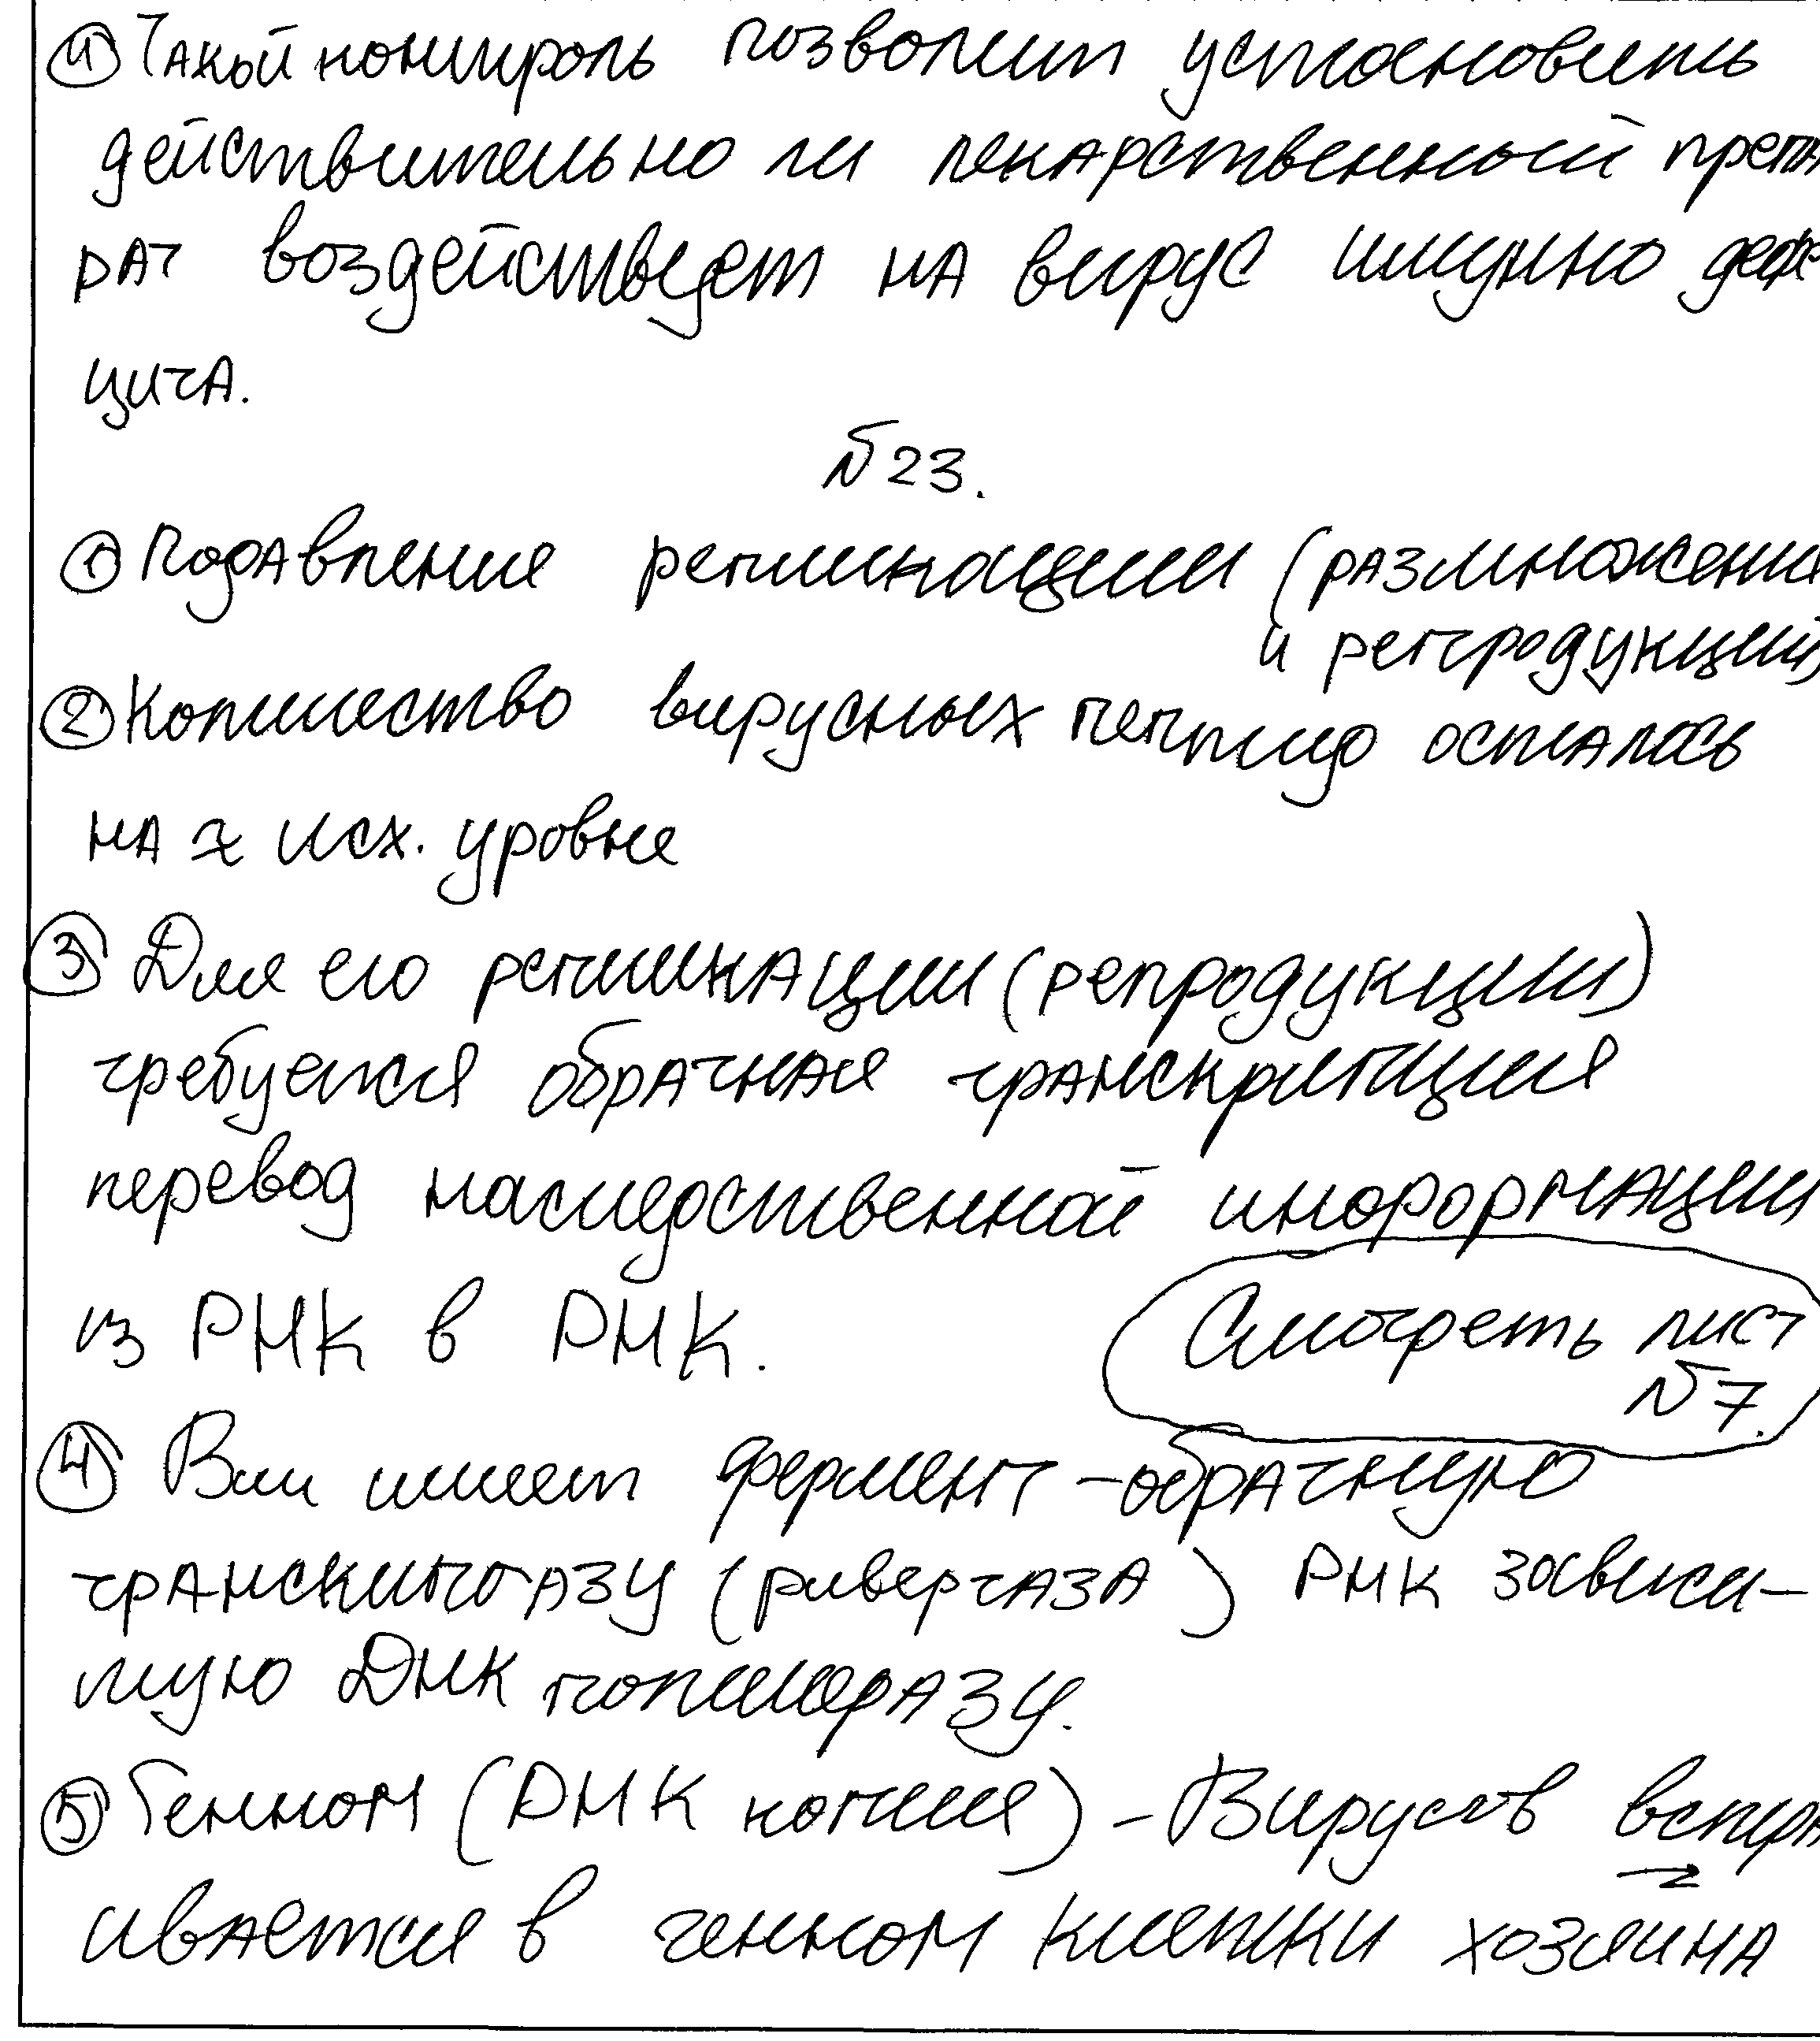 ④ Такой контроль позволит установить
действительно ли лекарственный препа
рат воздействует на вирус имунно дефе
цита.
№23.
① Подавление репликации (размножение
и репродукций)
② Количество вирусных пептидо осталась
на ≈ исх. уровне
③ Для его репликации (репродукции)
требуется обратная транскрипция
перевод наследственной информации
из РНК в РНК.
Смотреть лист
№7.
④ Вич имеет фермент - обратную
транскиптазу (ривертаза) РНК зависи-
мую ДНК полимеразу.
⑤ Генном (ДНК копия) - Вирусов встра
ивается в генном клетки хозяина